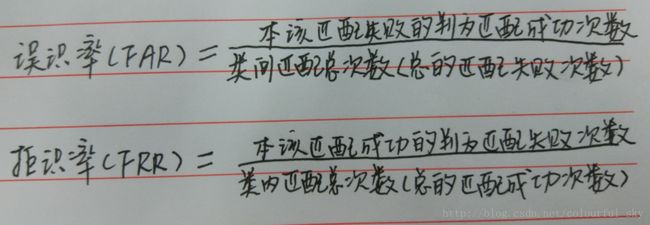 误识率(FAR) = 本该匹配失败的判为匹配成功次数
类间匹配总次数(总的匹配失败次数)
拒识率(FRR) = 本该匹配成功的判为匹配失败次数
类内匹配总次数(总的匹配成功次数)
http://blog.csdn.net/colourful_sky